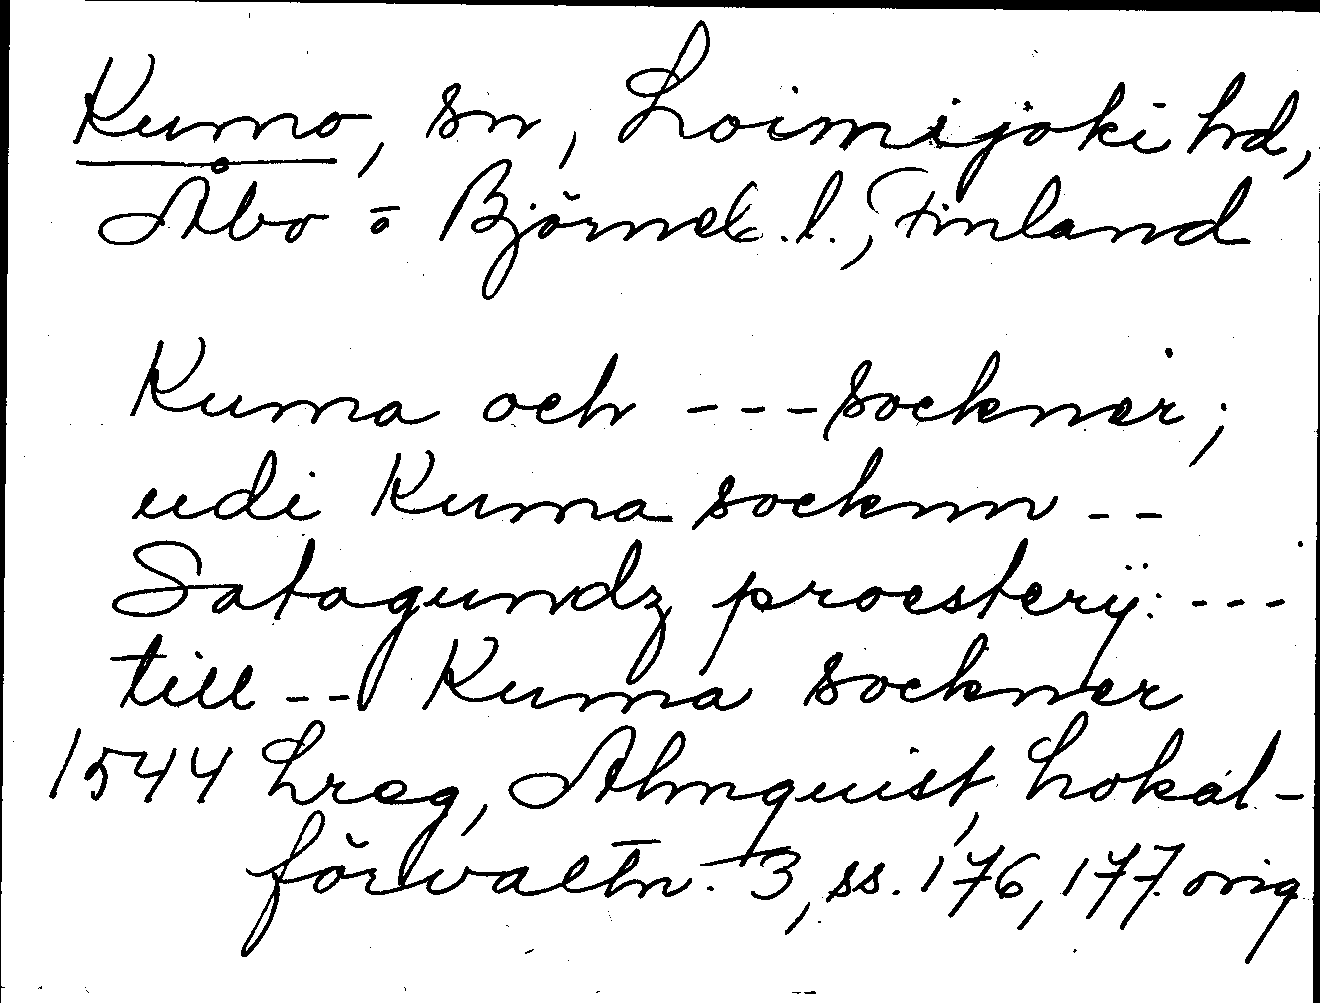 Kumo, sn, Loimijoki hd,
Åbo o Björneb. l., Finland
Kuma och --- sockner;
udi Kuma socknn --
Satagundz proesterÿ: ---
till -- Kuma sockner
1544 Lreg, Almquist, Lokal-
förvaltn. 3, ss. 176, 177. orig